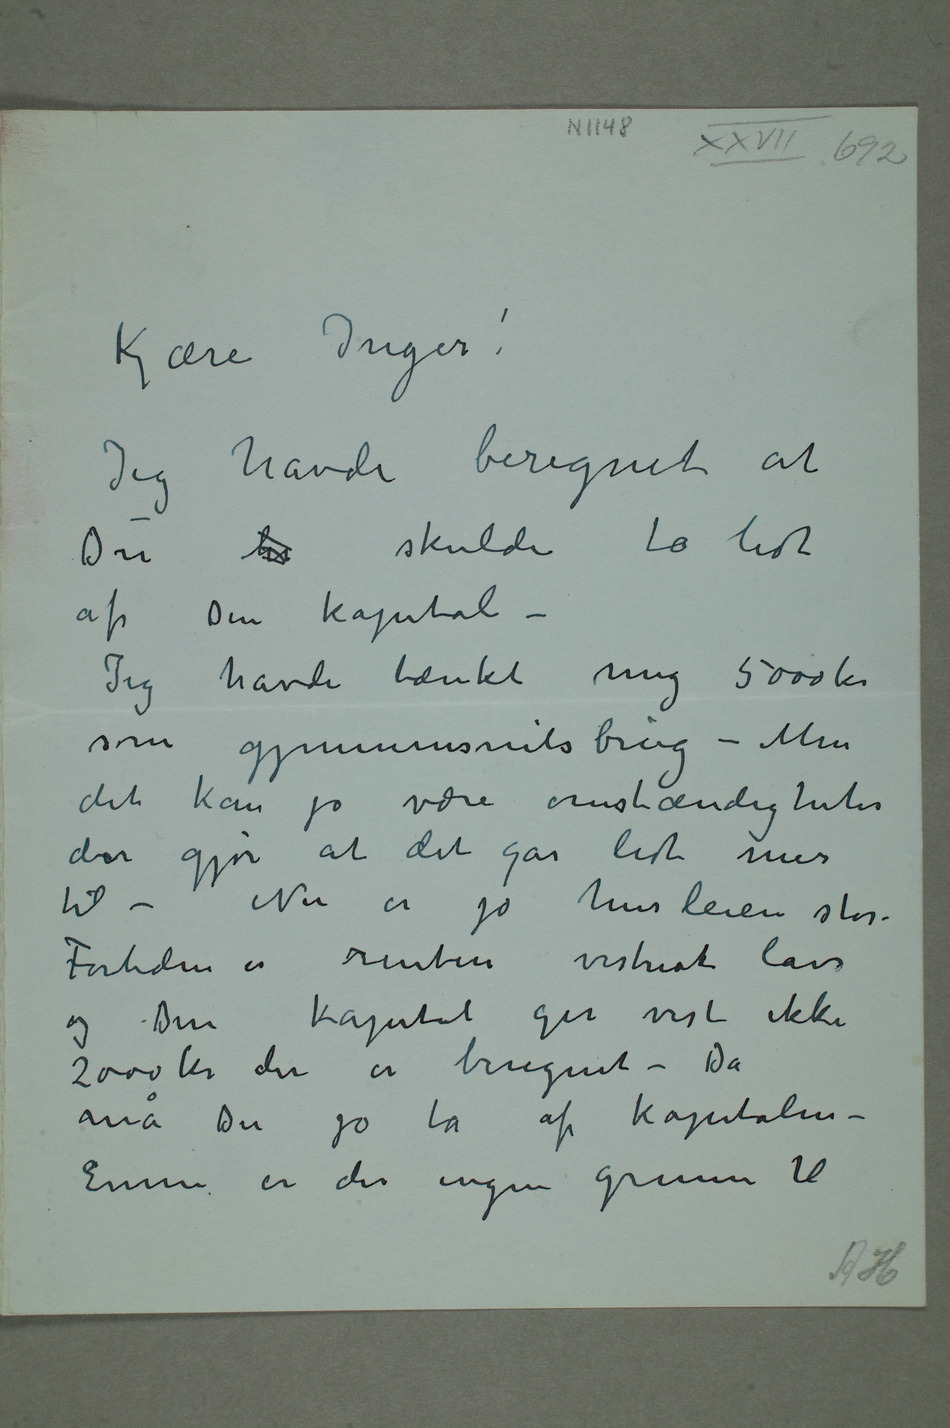 N1148
XXVII 692
Kjære Inger!
Jeg havde beregnet at
Du skulde ta lidt
af Din kapital –
Jeg havde tænkt mig 5000 kr
som gjennemsnitsbrug – Men
det kan jo være omstændigheter
der gjør at det går lidt mer
til – Nu er jo husleien stor –
Fortiden er renten vistnok lav
og Din kapital gir vist ikke
2000 kr der er beregnet – Da
må Du jo ta af kapitalen –
Ennu er der ingen grunn til
AH